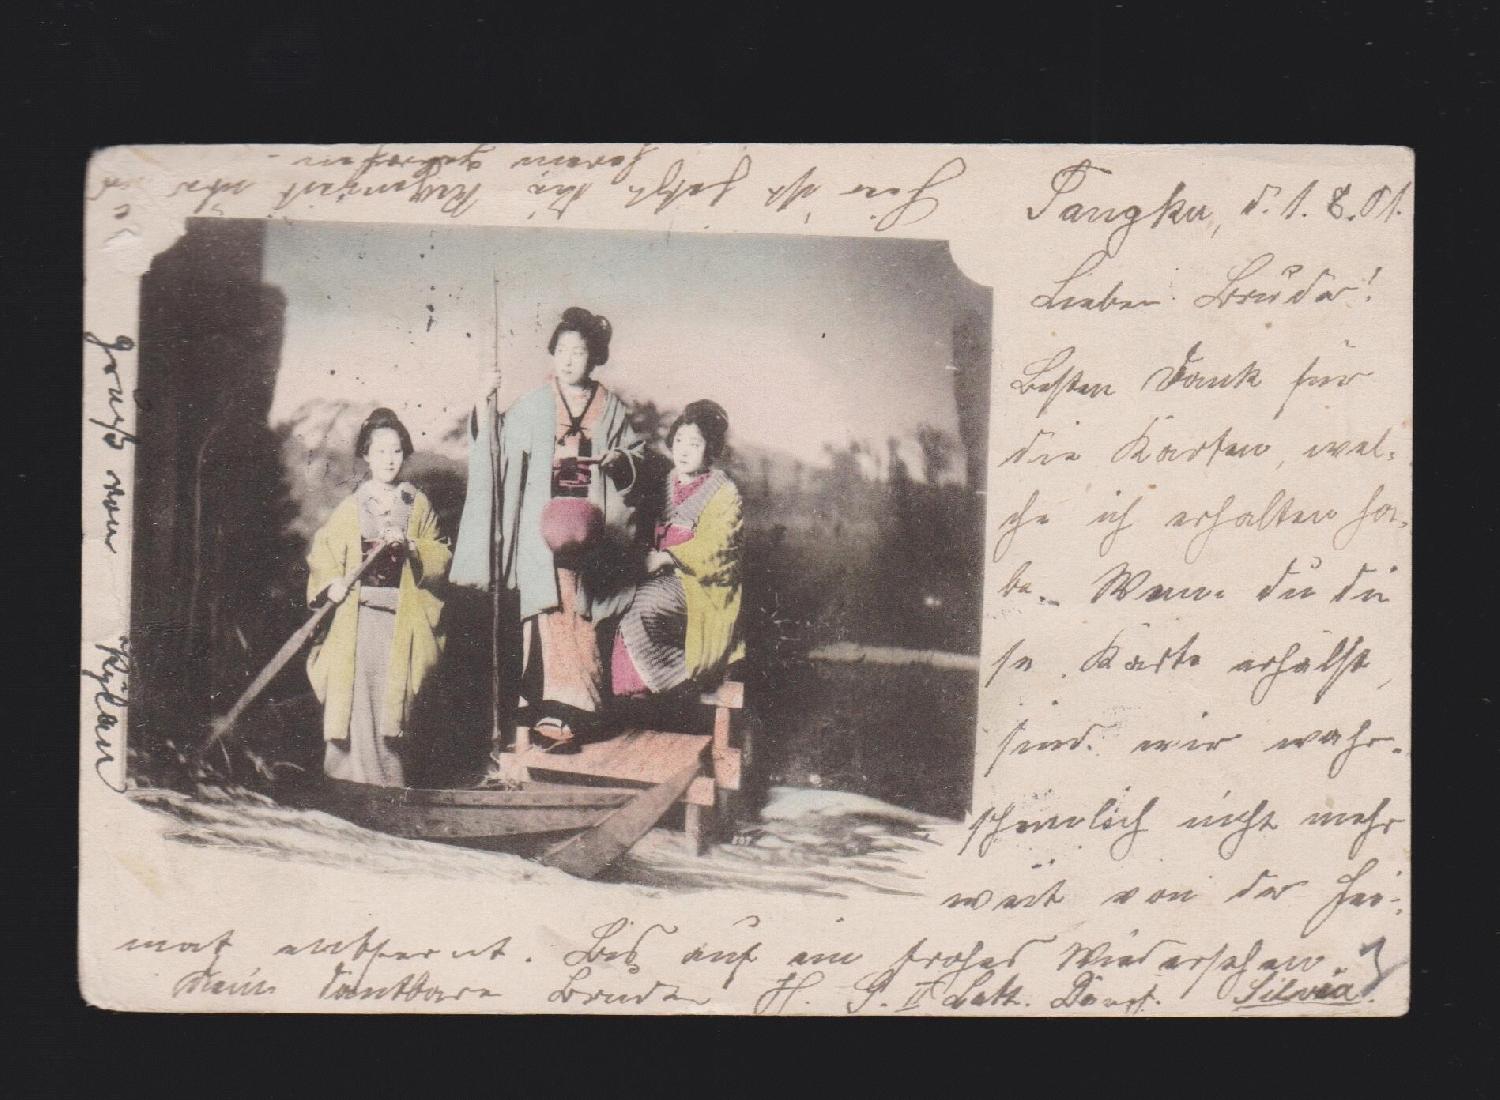 Tangku, d. 1. 8. 01.
Lieber Bruder!
Besten Dank für
die Karten, wel-
che ich erhalten ha-
be. Wenn du die
se Karte erhälst,
sind wir wahr-
scheinlich nicht mehr
weit von der Hei-
mat entfernt. Bis auf ein frohes Wiedersehen.
Dein dankbarer Bruder H. S. II Batt. Dampf. Silvia.
Hier ist jetzt die Regenzeit
Gruß von